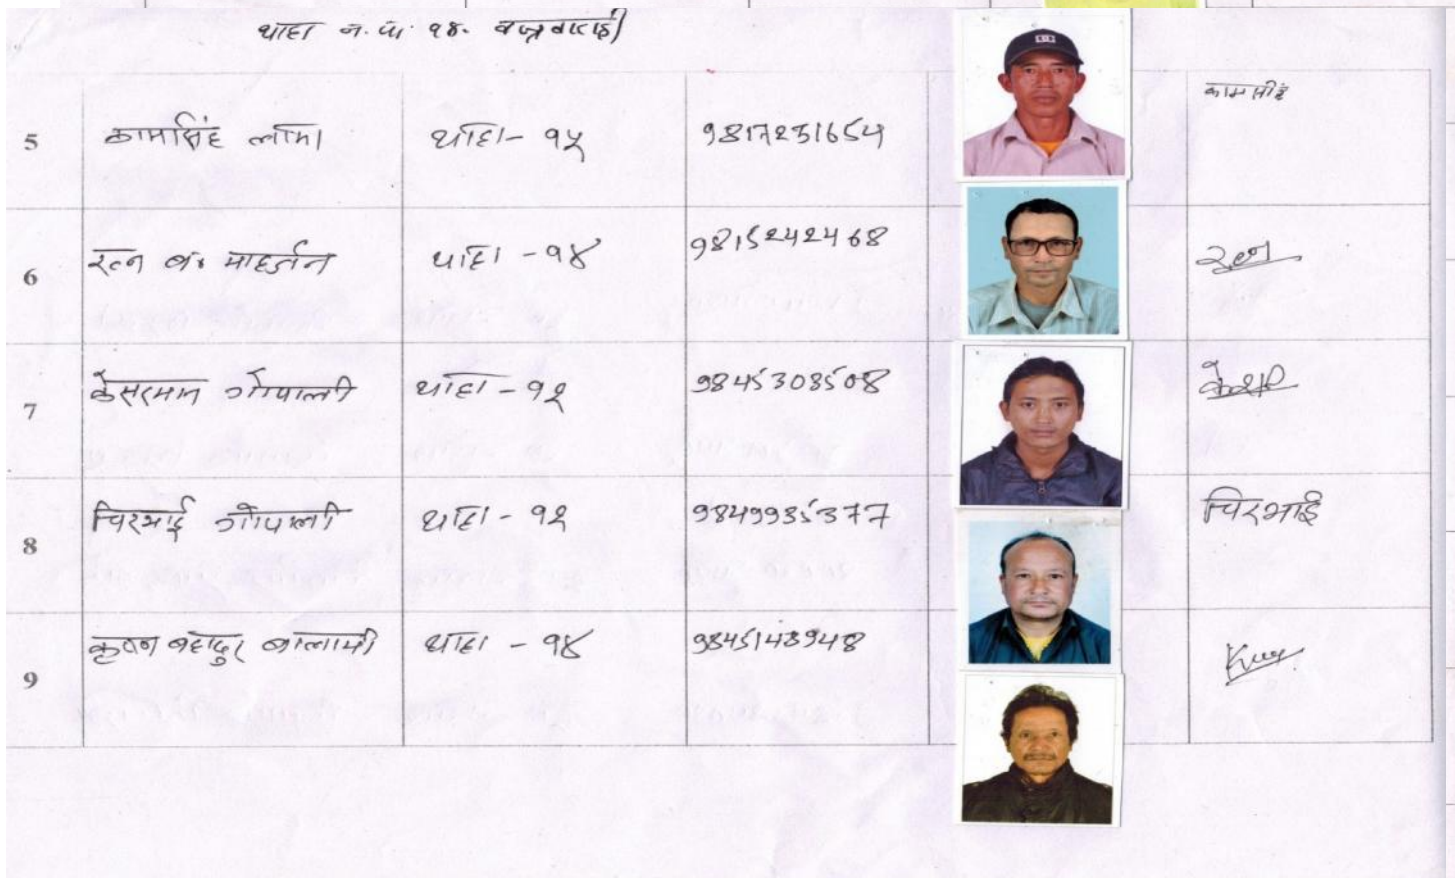 थाहा न.पा. १४. वज्रबाराही
5 कामसिंह लामा थाहा - १५ 9817251654 कामसिंह
6 रत्न ब. माहर्जन थाहा - १४ 9815242468 रत्न
7 केसरमान गोपाली थाहा - १२ 9845303508 केशर
8 चिरभाई गोपाली थाहा - १२ 9849935377 चिरभाई
9 कृष्ण बहादुर बलामी थाहा - १४ 9845148948